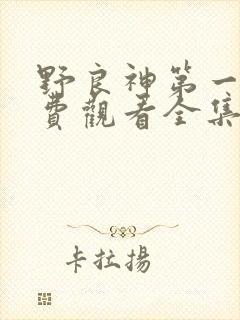 野良神第一
費觀看全集
卡拉揚